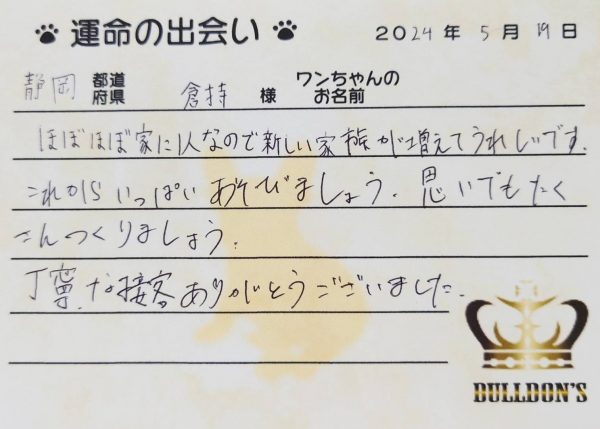 運命の出会い 2024年5月19日
静岡 都道府県 倉持 様 ワンちゃんのお名前
ほぼほぼ家に1人なので新しい家族が増えてうれしいです.
これからいっぱいあそびましょう. 思いでもたく
さんつくりましょう.
丁寧な接客ありがとうございました.
BULLDON'S